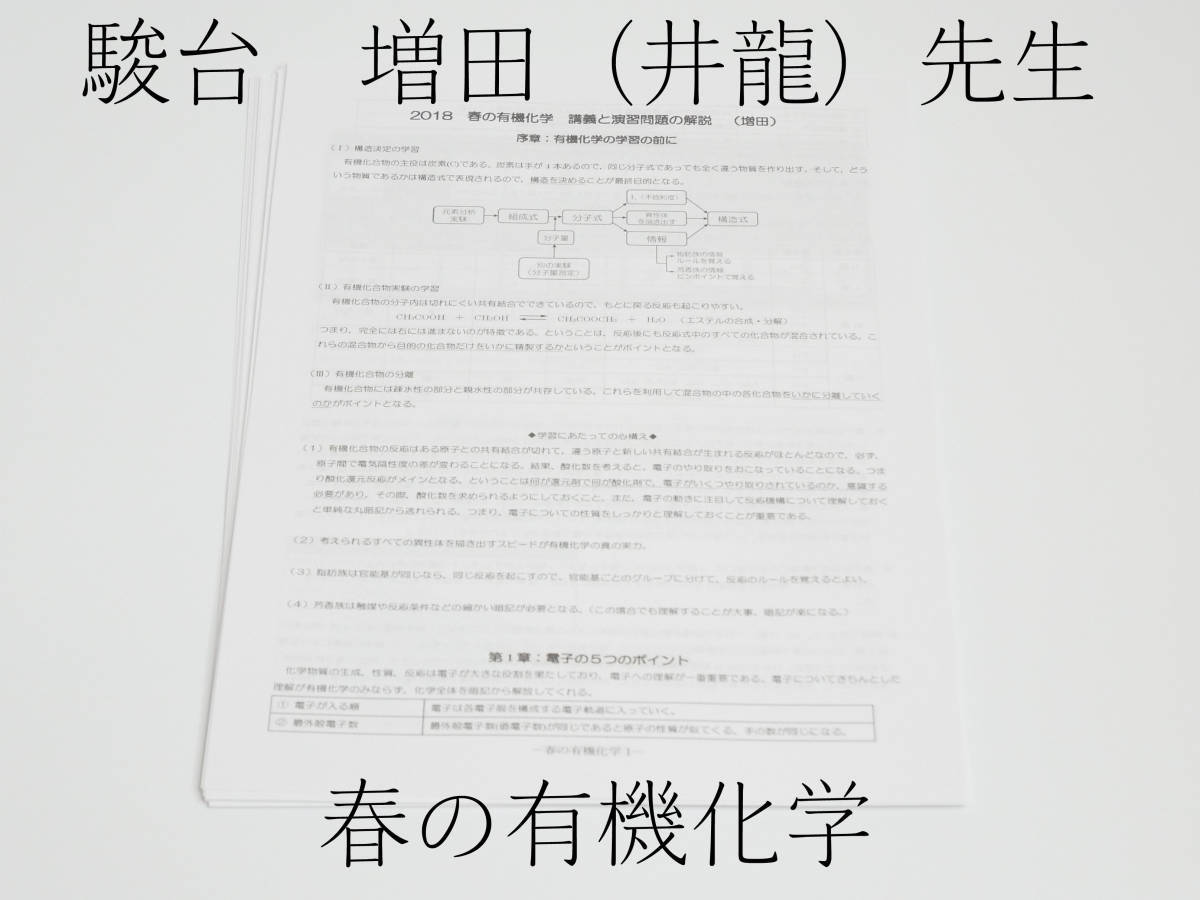 駿台　増田（井龍）先生
2018　春の有機化学　講義と演習問題の解説　（増田）
序章：有機化学の学習の前に
（Ⅰ）構造決定の学習
有機化合物の主役は炭素(C)である。炭素は手が４本あるので、同じ分子式であっても全く違う物質を作り出す。そして、どう
いう物質であるかは構造式で表現されるので、構造を決めることが最終目的となる。
元素分析
実験
組成式
分子式
I.（不飽和度）
異性体
を描き出す
情報
構造式
分子量
別の実験
（分子量測定）
脂肪族の情報
ルールを覚える
芳香族の情報
ピンポイントで覚える
（Ⅱ）有機化合物実験の学習
有機化合物の分子内は切れにくい共有結合でできているので、もとに戻る反応も起こりやすい。
CH₃COOH　+　CH₃OH　⇄　CH₃COOCH₃　+　H₂O　（エステルの合成・分解）
つまり、完全には右には進まないのが特徴である。ということは、反応後にも反応式中のすべての化合物が混合されている。こ
れらの混合物から目的の化合物だけをいかに精製するかということがポイントとなる。
（Ⅲ）有機化合物の分離
有機化合物には疎水性の部分と親水性の部分が共存している。これらを利用して混合物の中の各化合物をいかに分離していく
のかがポイントとなる。
◆学習にあたっての心構え◆
（１）有機化合物の反応はある原子との共有結合が切れて、違う原子と新しい共有結合が生まれる反応がほとんどなので、必ず、
原子間で電気陰性度の差が変わることになる。結果、酸化数を考えると、電子のやり取りをおこなっていることになる。つま
り酸化還元反応がメインとなる。ということは何が還元剤で何が酸化剤で、電子がいくつやり取りされているのか、意識する
必要があり、その際、酸化数を求められるようにしておくこと。また、電子の動きに注目して反応機構について理解しておく
と単純な丸暗記から逃れられる。つまり、電子についての性質をしっかりと理解しておくことが重要である。
（２）考えられるすべての異性体を描き出すスピードが有機化学の真の実力。
（３）脂肪族は官能基が同じなら、同じ反応を起こすので、官能基ごとのグループに分けて、反応のルールを覚えるとよい。
（４）芳香族は触媒や反応条件などの細かい暗記が必要となる。（この場合でも理解することが大事、暗記が楽になる。）
第１章：電子の５つのポイント
化学物質の生成、性質、反応は電子が大きな役割を果たしており、電子への理解が一番重要である。電子についてきちんとした
理解が有機化学のみならず、化学全体を暗記から解放してくれる。
① 電子が入る順　電子は各電子殻を構成する電子軌道に入っていく。
② 最外殻電子数　最外殻電子数(価電子数)が同じであると原子の性質が似てくる。手の数が同じになる。
－春の有機化学１－
春の有機化学